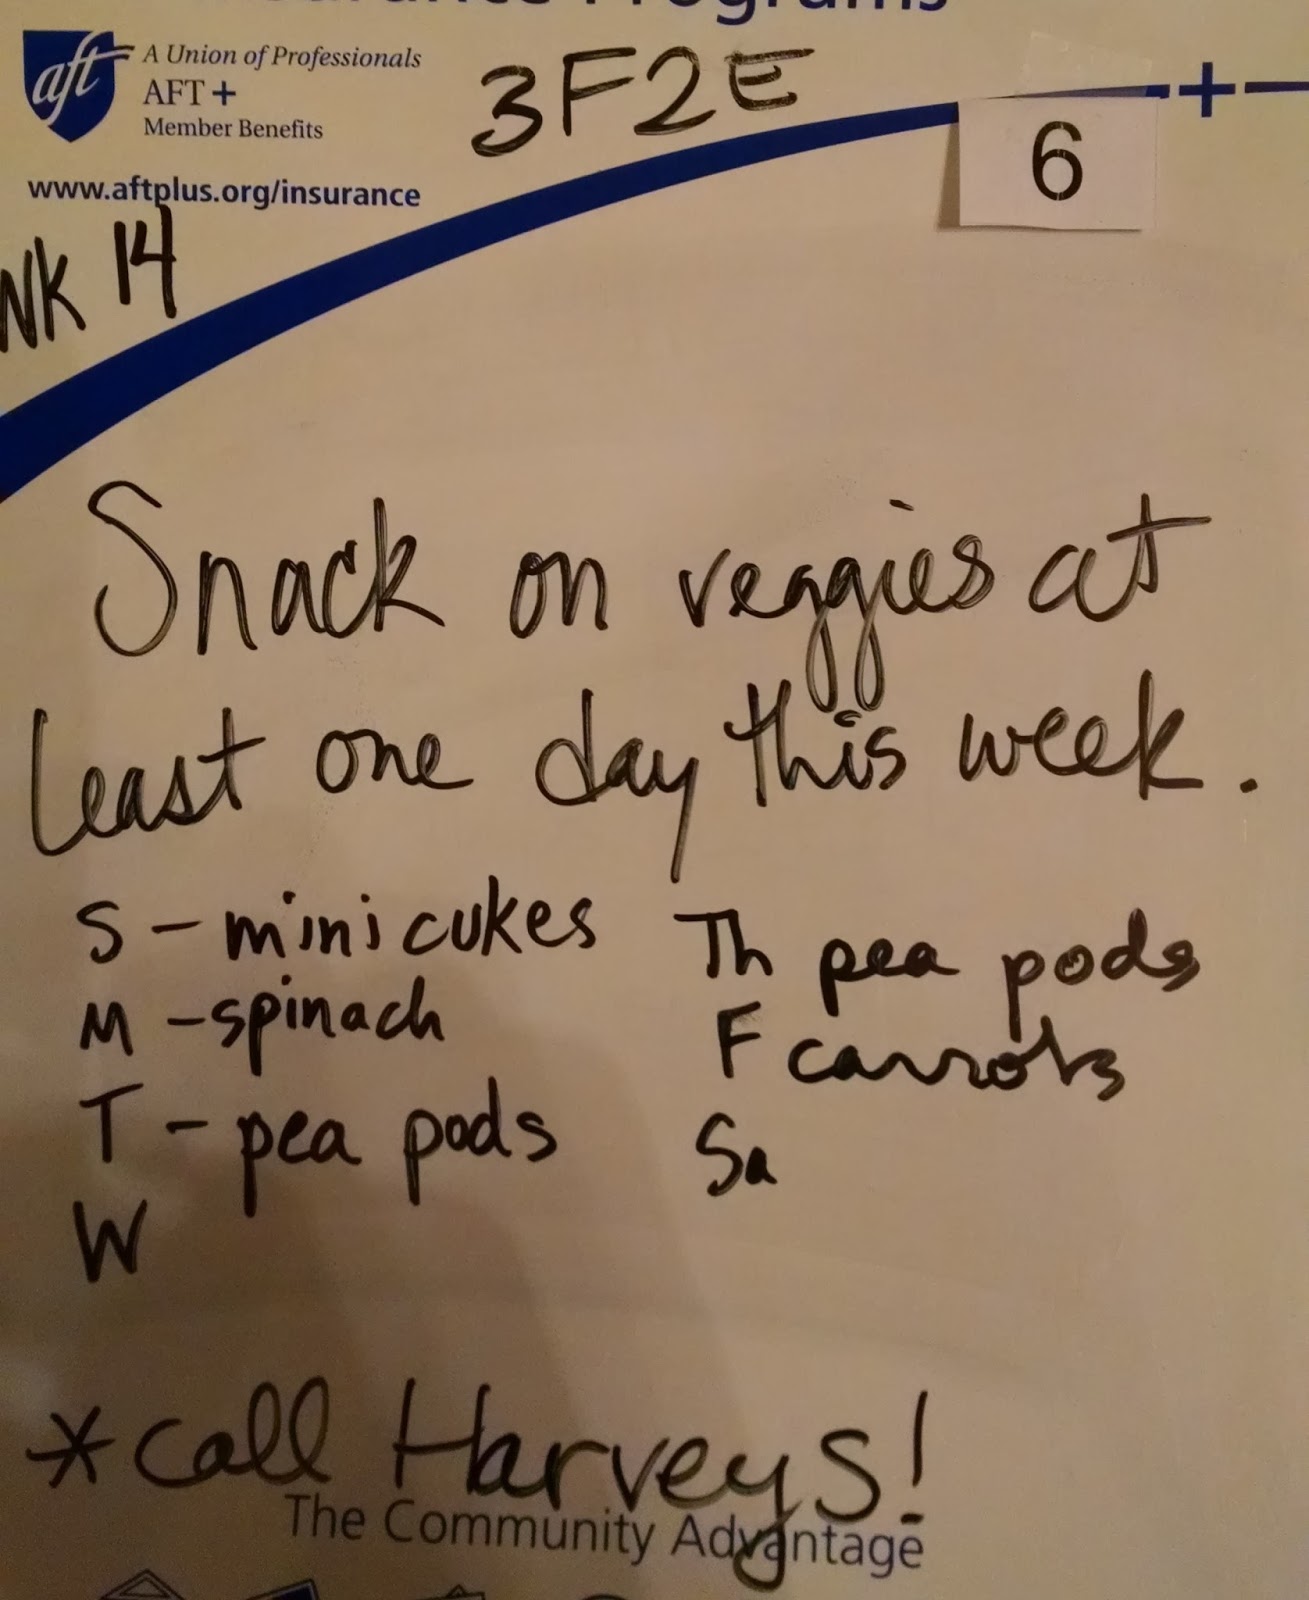 Insurance Programs
aft
A Union of Professionals
AFT +
Member Benefits
www.aftplus.org/insurance
3F2E
6
WK 14
Snack on veggies at
least one day this week.
S - mini cukes
M - spinach
T - pea pods
W
Th pea pods
F carrots
Sa
* Call Harveys!
The Community Advantage